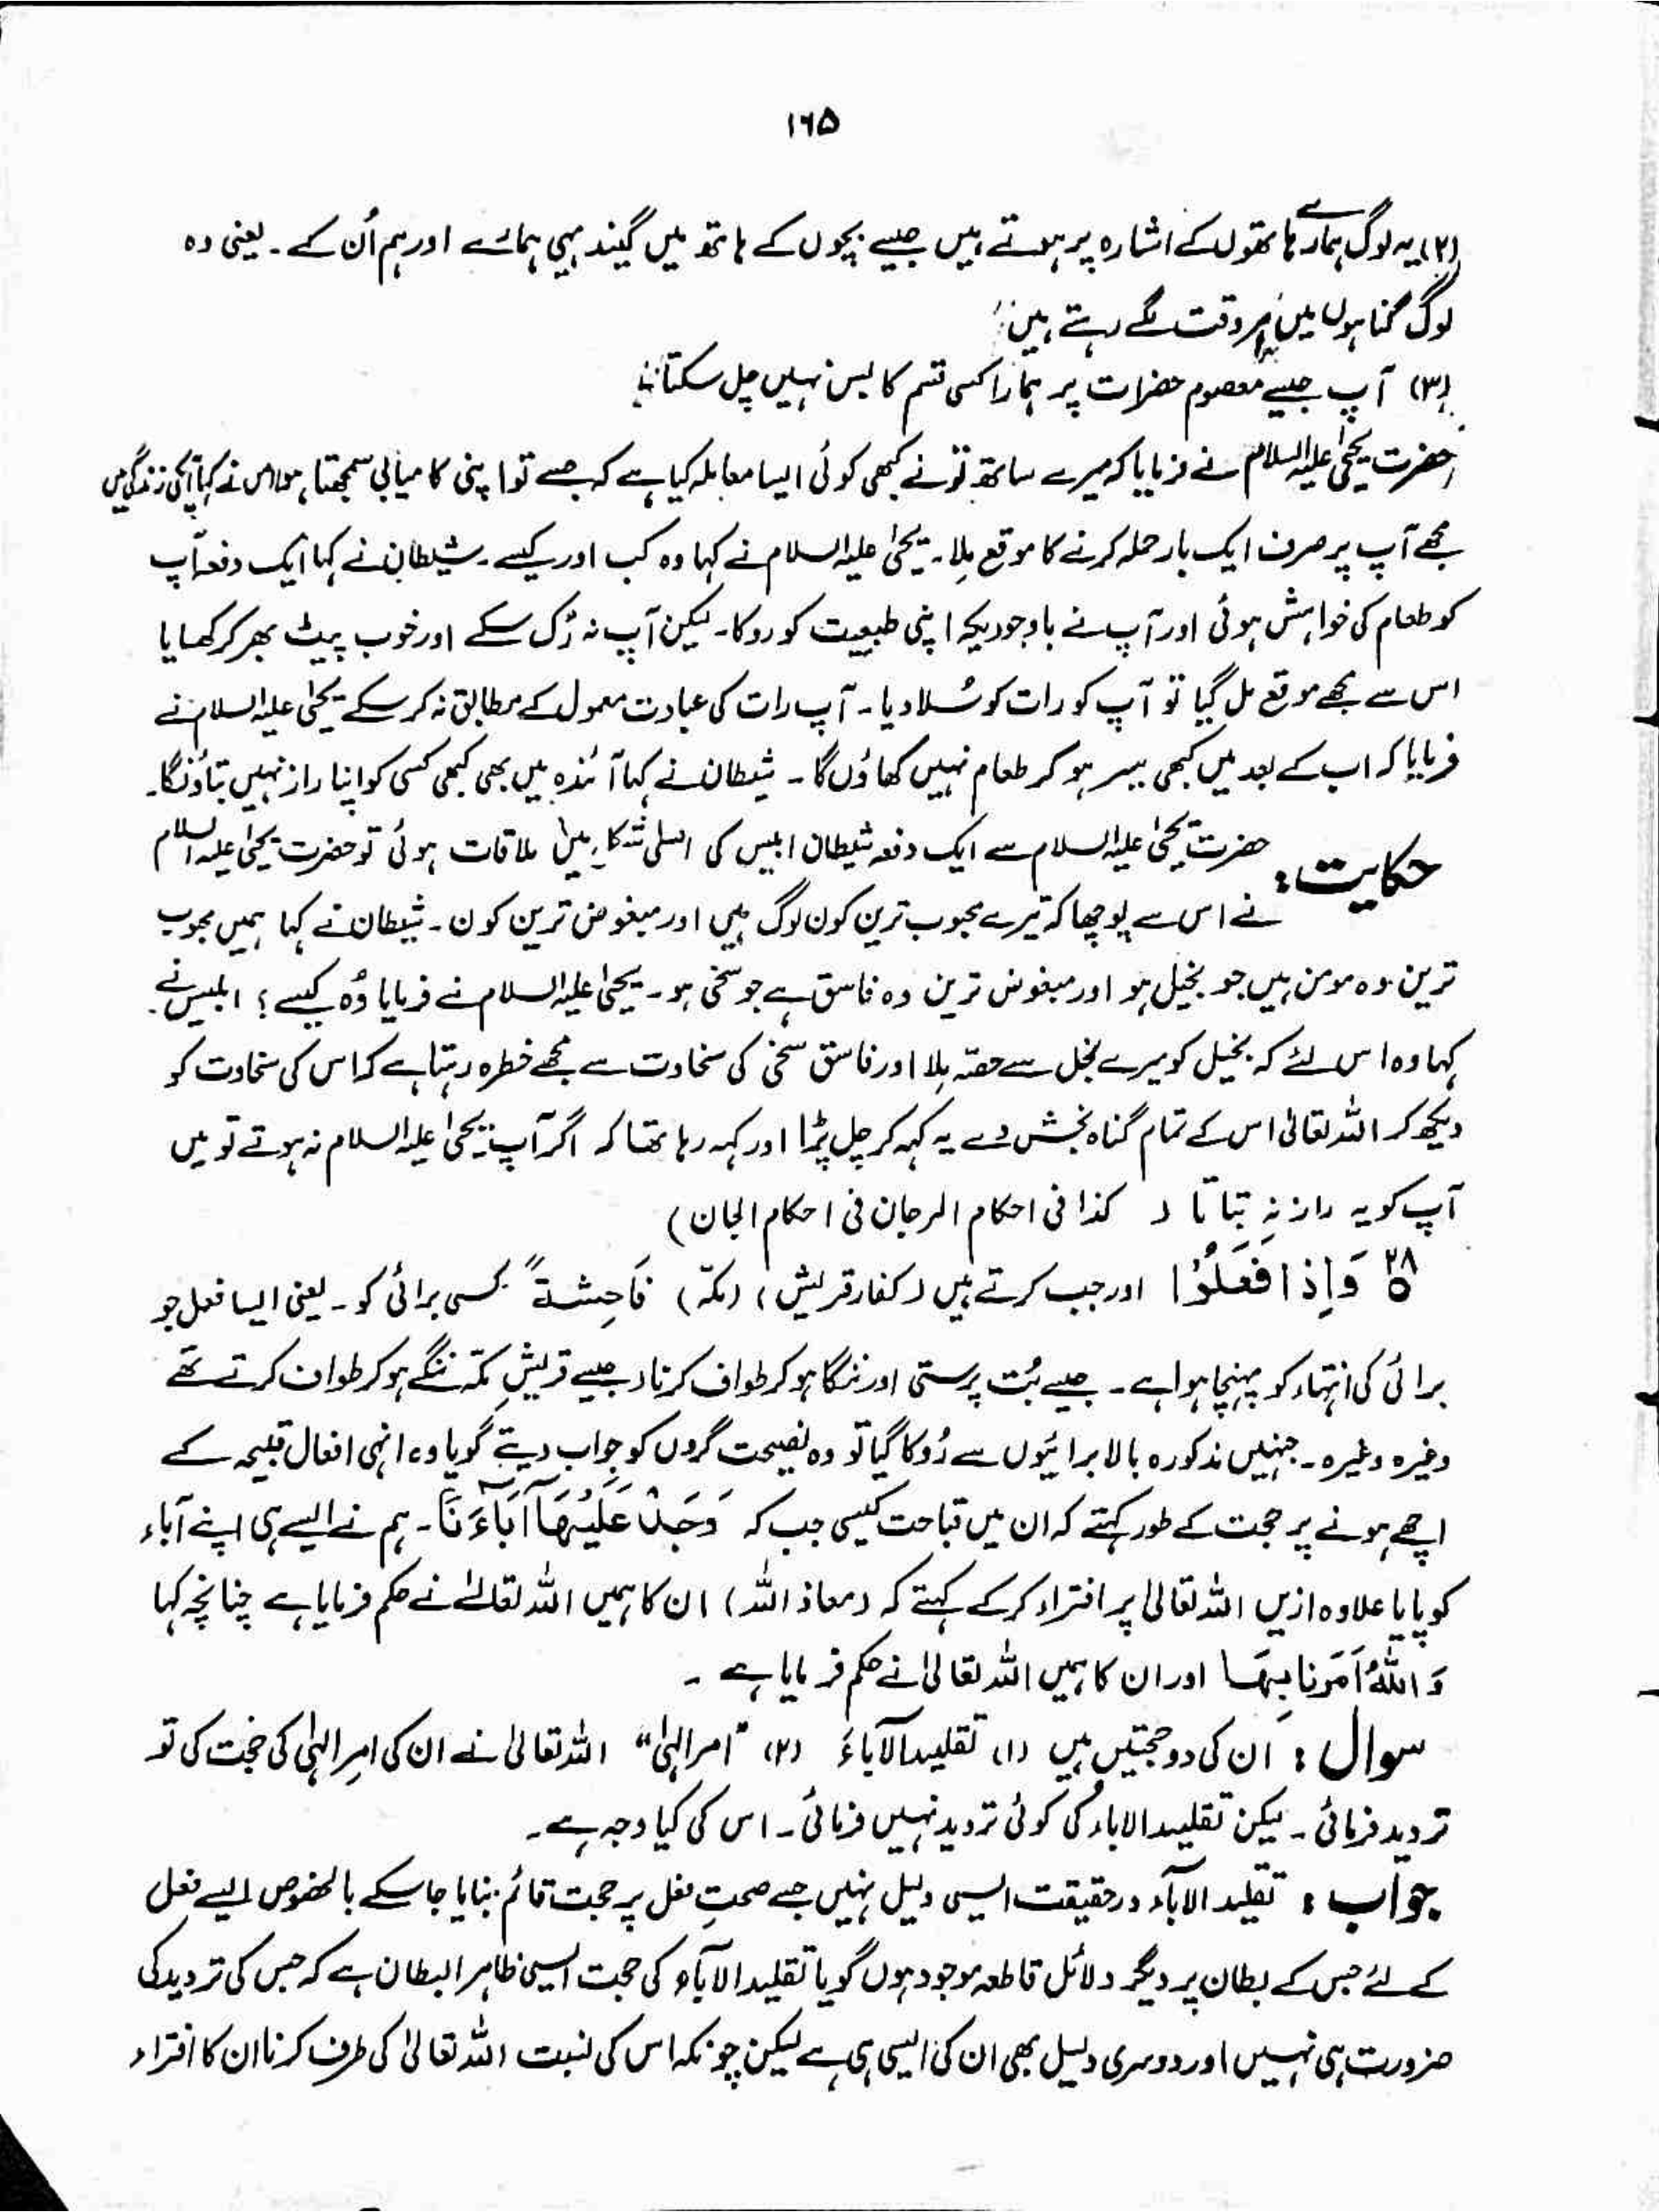 ۱۶۵
(۲) یہ لوگ ہمارے ہاتھوں کے اشارہ پر ہوتے ہیں جیسے بچوں کے ہاتھ میں گیند یہی ہمارے اور ہم اُن کے ۔ یعنی وہ
لوگ گناہوں میں ہر وقت لگے رہتے ہیں
(۳) آپ جیسے معصوم حضرات پر ہمارا کسی قسم کا بس نہیں چل سکتا
حضرت یحیٰی علیہ السلام نے فرمایا کہ میرے ساتھ تو نے کبھی کوئی ایسا معاملہ کیا ہے کہ جسے تو اپنی کامیابی سمجھتا ہو اس نے کہا آپکی زندگی میں
مجھے آپ پر صرف ایک بار حملہ کرنے کا موقع مِلا ۔ یحیٰی علیہ السلام نے کہا وہ کب اور کیسے ۔ شیطان نے کہا ایک دفعہ آپ
کو طعام کی خواہش ہوئی اور آپ نے باوجودیکہ اپنی طبیعت کو روکا ۔ لیکن آپ نہ رُک سکے اور خوب پیٹ بھر کر کھایا
اس سے مجھے موقع مل گیا تو آپ کو رات کو سُلا دیا ۔ آپ رات کی عبادت معمول کے مطابق نہ کر سکے یحیٰی علیہ السلام نے
فرمایا کہ اب کے بعد میں کبھی سیر ہو کر طعام نہیں کھاؤں گا ۔ شیطان نے کہا آئندہ میں بھی کبھی کسی کو اپنا راز نہیں بتاؤنگا ۔
حکایت : حضرت یحیٰی علیہ السلام سے ایک دفعہ شیطان ابلیس کی اصلی شکل میں ملاقات ہوئی تو حضرت یحیٰی علیہ السلام
نے اس سے پوچھا کہ تیرے محبوب ترین کون لوگ ہیں اور مبغوض ترین کون ۔ شیطان نے کہا ہمیں محبوب
ترین وہ مومن ہیں جو بخیل ہو اور مبغوض ترین وہ فاسق ہے جو سخی ہو ۔ یحیٰی علیہ السلام نے فرمایا وُہ کیسے ؟ ابلیس نے
کہا وہ اس لئے کہ بخیل کو میرے بخل سے حصّہ مِلا اور فاسق سخی کی سخاوت سے مجھے خطرہ رہتا ہے کہ اس کی سخاوت کو
دیکھ کر اللہ تعالیٰ اس کے تمام گناہ بخش دے یہ کہہ کر چل پڑا اور کہہ رہا تھا کہ اگر آپ یحیٰی علیہ السلام نہ ہوتے تو میں
آپ کو یہ راز نہ بتاتا ( کذا فی احکام المرجان فی احکام الجان )
۲۸ وَاِذَا فَعَلُوْا اور جب کرتے ہیں ( کفار قریش ) ( مکّہ ) فَاحِشَةً کسی برائی کو ۔ یعنی ایسا فعل جو
برائی کی انتہاء کو پہنچا ہوا ہے ۔ جیسے بُت پرستی اور ننگا ہو کر طواف کرنا د جیسے قریشِ مکّہ ننگے ہو کر طواف کرتے تھے
وغیرہ وغیرہ ۔ جنہیں مذکورہ بالا برائیوں سے رُوکا گیا تو وہ نصیحت گروں کو جواب دیتے گویا وہ انہی افعال قبیحہ کے
اچھے ہونے پر حجت کے طور کہتے کہ ان میں قباحت کیسی جب کہ وَجَدْنَا عَلَيْهَآ اٰبَآءَنَا ۔ ہم نے ایسے ہی اپنے آباء
کو پایا علاوہ ازیں اللہ تعالیٰ پر افتراء کر کے کہتے کہ ( معاذ اللہ ) ان کا ہمیں اللہ تعالےٰ نے حکم فرمایا ہے چنانچہ کہا
وَاللّٰهُ اَمَرَنَا بِهَا اور ان کا ہمیں اللہ تعالیٰ نے حکم فرمایا ہے ۔
سوال : ان کی دو حجتیں ہیں (۱) تقلید الآباء (۲) "امر الٰہی" اللہ تعالیٰ نے ان کی امرِ الٰہی کی حجت کی تو
تردید فرمائی ۔ لیکن تقلید الاباء کی کوئی تردید نہیں فرمائی ۔ اس کی کیا وجہ ہے ۔
جواب : تقلید الآباء درحقیقت ایسی دلیل نہیں جسے صحتِ فعل پر حجت قائم بنایا جا سکے بالخصوص ایسے فعل
کے لئے جس کے بطان پر دیگر دلائل قاطعہ موجود ہوں گویا تقلید الآباء کی حجت ایسی ظاہر البطان ہے کہ جس کی تردید کی
ضرورت ہی نہیں اور دوسری دلیل بھی ان کی ایسی ہی ہے لیکن چونکہ اس کی نسبت اللہ تعالیٰ کی طرف کرنا ان کا افتراء